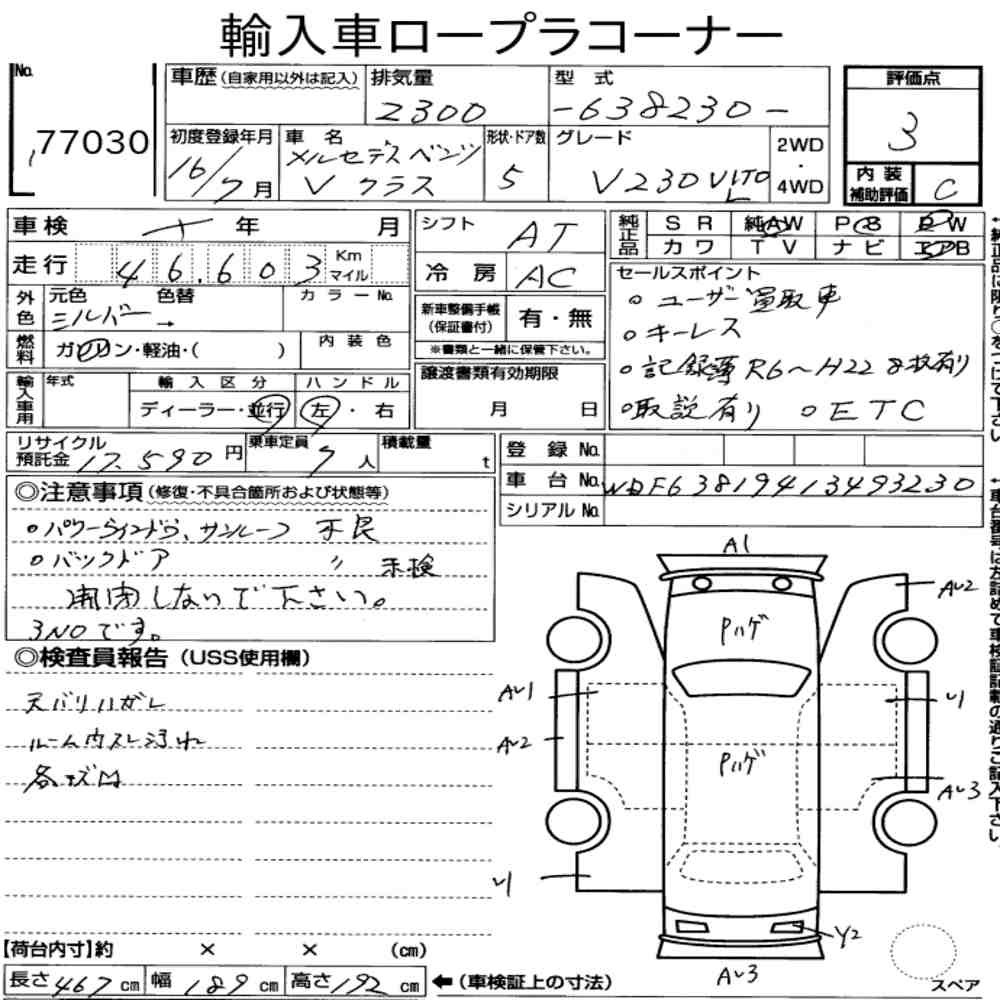 輸入車ロープラコーナー
No.
77030
車歴(自家用以外は記入)
排気量
2300
型式
-638230-
評価点
3
初度登録年月
16/7月
車名
メルセデスベンツ
Vクラス
形状・ドア数
5
グレード
V230 VITO
L
2WD
・
4WD
内装
補助評価
C
車検 年 月
走行 46,603 Km
マイル
外色
元色 色替 カラーNo.
シルバー →
燃料
ガソリン・軽油・( )
内装色
輸入車用
年式
輸入区分
ディーラー・並行
ハンドル
左・右
シフト
AT
冷房
AC
新車整備手帳
(保証書付)
有・無
※書類と一緒に保管下さい。
譲渡書類有効期限
月 日
純正品
SR 純AW PS PW
カワ TV ナビ エアB
セールスポイント
○ユーザー買取車
○キーレス
○記録簿R6〜H22 8枚有り
○取説有り ○ETC
リサイクル
預託金 17,590円
乗車定員 7人
積載量 t
登録No.
車台No. WDF63819413493230
シリアルNo.
◎注意事項(修復・不具合箇所および状態等)
○パワーウインドウ、サンルーフ 不良
○バックドア 〃 未検
開閉しないで下さい。
3NOです。
◎検査員報告(USS使用欄)
天バリハガレ
ルーム内スレ汚れ
各キズ凹
A1
AU2
Pハゲ
AU1
U1
AU2
Pハゲ
AU3
U1
Y2
AU3
スペア
【荷台内寸】約 × × (cm)
長さ467cm 幅189cm 高さ192cm
←(車検証上の寸法)